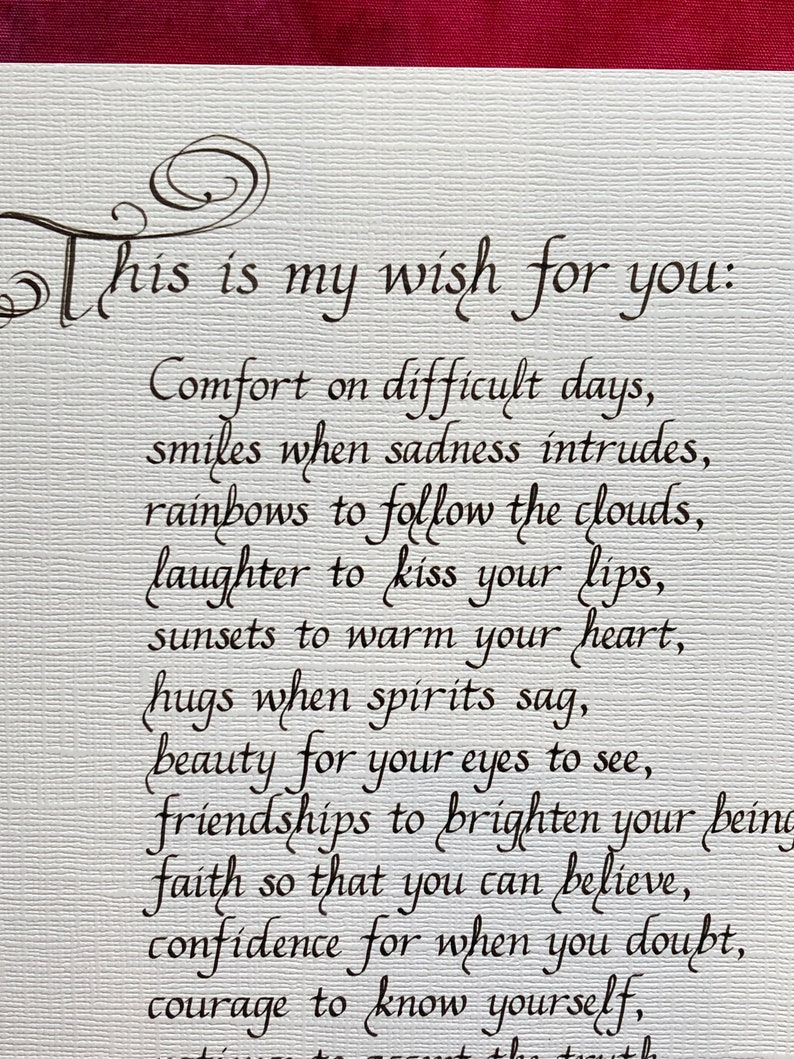 This is my wish for you:
Comfort on difficult days,
smiles when sadness intrudes,
rainbows to follow the clouds,
laughter to kiss your lips,
sunsets to warm your heart,
hugs when spirits sag,
beauty for your eyes to see,
friendships to brighten your being
faith so that you can believe,
confidence for when you doubt,
courage to know yourself,
to accept the truth